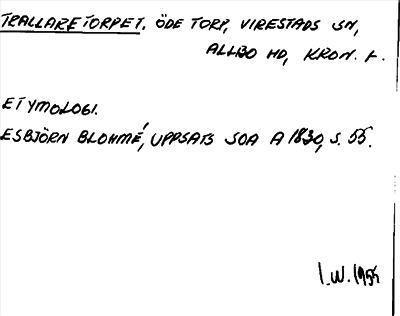 TRALLARETORPET. ÖDE TORP, VIRESTADS SN,
ALLBO HD, KRON. L.
ETYMOLOGI.
ESBJÖRN BLOHMÉ, UPPSATS SOA A 1830, S. 55.
I.W. 1955